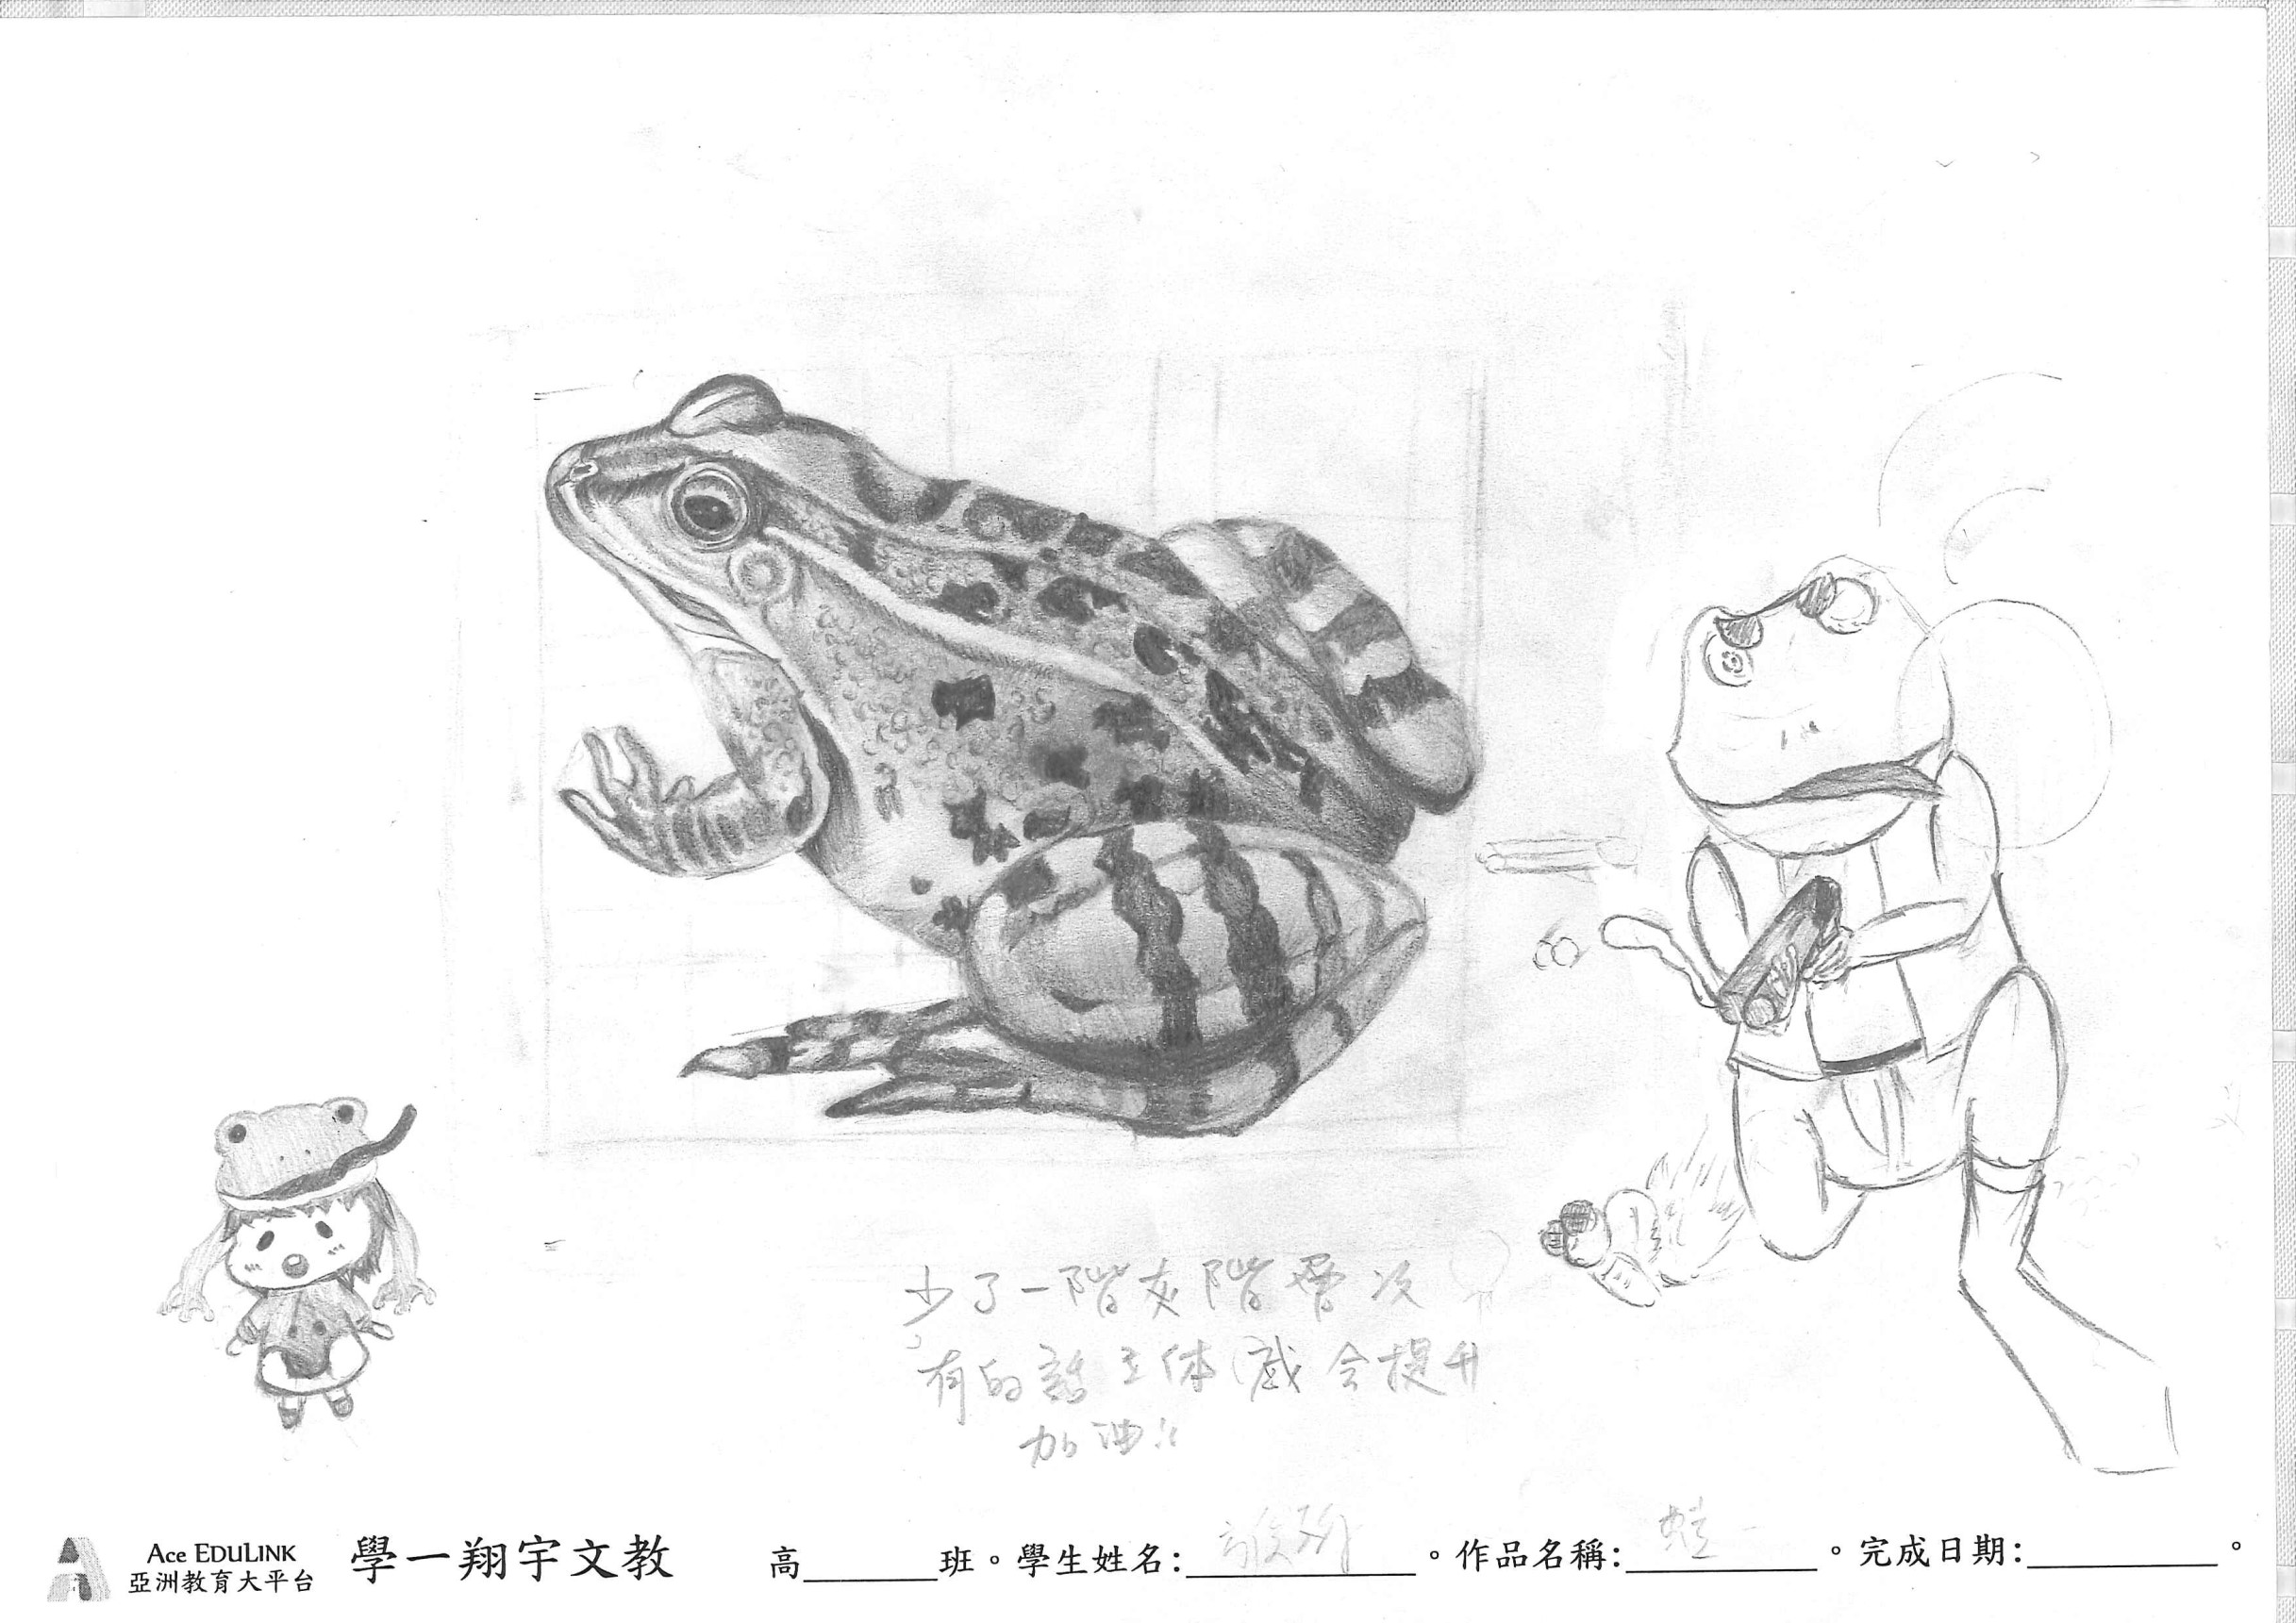 少了一階灰階層次
有的話立体感会提升
加油!!
ACE EDULINK
亞洲教育大平台
學一翔宇文教
高______班。學生姓名:__________。作品名稱:蛙。完成日期:__________。